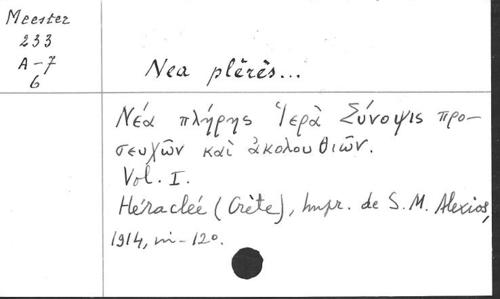 Meester
233
A-7
6
Nea plêrês...
Νέα πλήρης Ἱερὰ Σύνοψις προ-
σευχῶν καὶ ἀκολουθιῶν.
Vol. I.
Héraclée (Crète), Impr. de S. M. Alexios,
1914, in-12º.